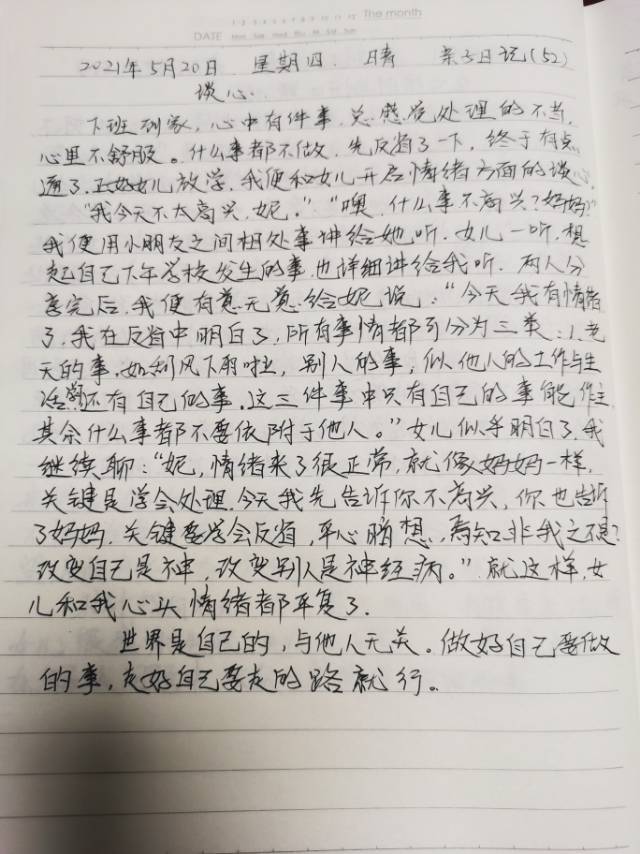 1 2 3 4 5 6 7 8 9 10 11 12 The month
DATE Mon Tue Wed Thu Fri Sat Sun
2021年5月20日 星期四 晴 亲子日记(52)
谈心.
下班到家，心中有件事，总感觉处理的不当，
心里不舒服。什么事都不做，先反省了一下，终于有点
通了.正好女儿放学.我便和女儿开启情绪方面的谈心.
"我今天不太高兴，妮。""噢，什么事不高兴？妈妈？"
我便用小朋友之间相处事讲给她听.女儿一听，想
起自己下午学校发生的事，也详细讲给我听.两人分
享完后，我便有意无意给妮说："今天我有情绪
了，我在反省中明白了，所有事情都可分为三类：1.老
天的事.如刮风下雨啦，别人的事，似他人的工作与生
活等还有自己的事.这三件事中只有自己的事能作主.
其余什么事都不要依附于他人。"女儿似乎明白了.我
继续聊："妮，情绪来了很正常，就像妈妈一样，
关键是学会处理.今天我先告诉你不高兴，你也告诉
了妈妈.关键要学会反省，平心 想，焉知非我之不是？
改变自己是神，改变别人是神经病。"就这样，女
儿和我心头情绪都平复了.
世界是自己的，与他人无关。做好自己要做
的事，走好自己要走的路就行。